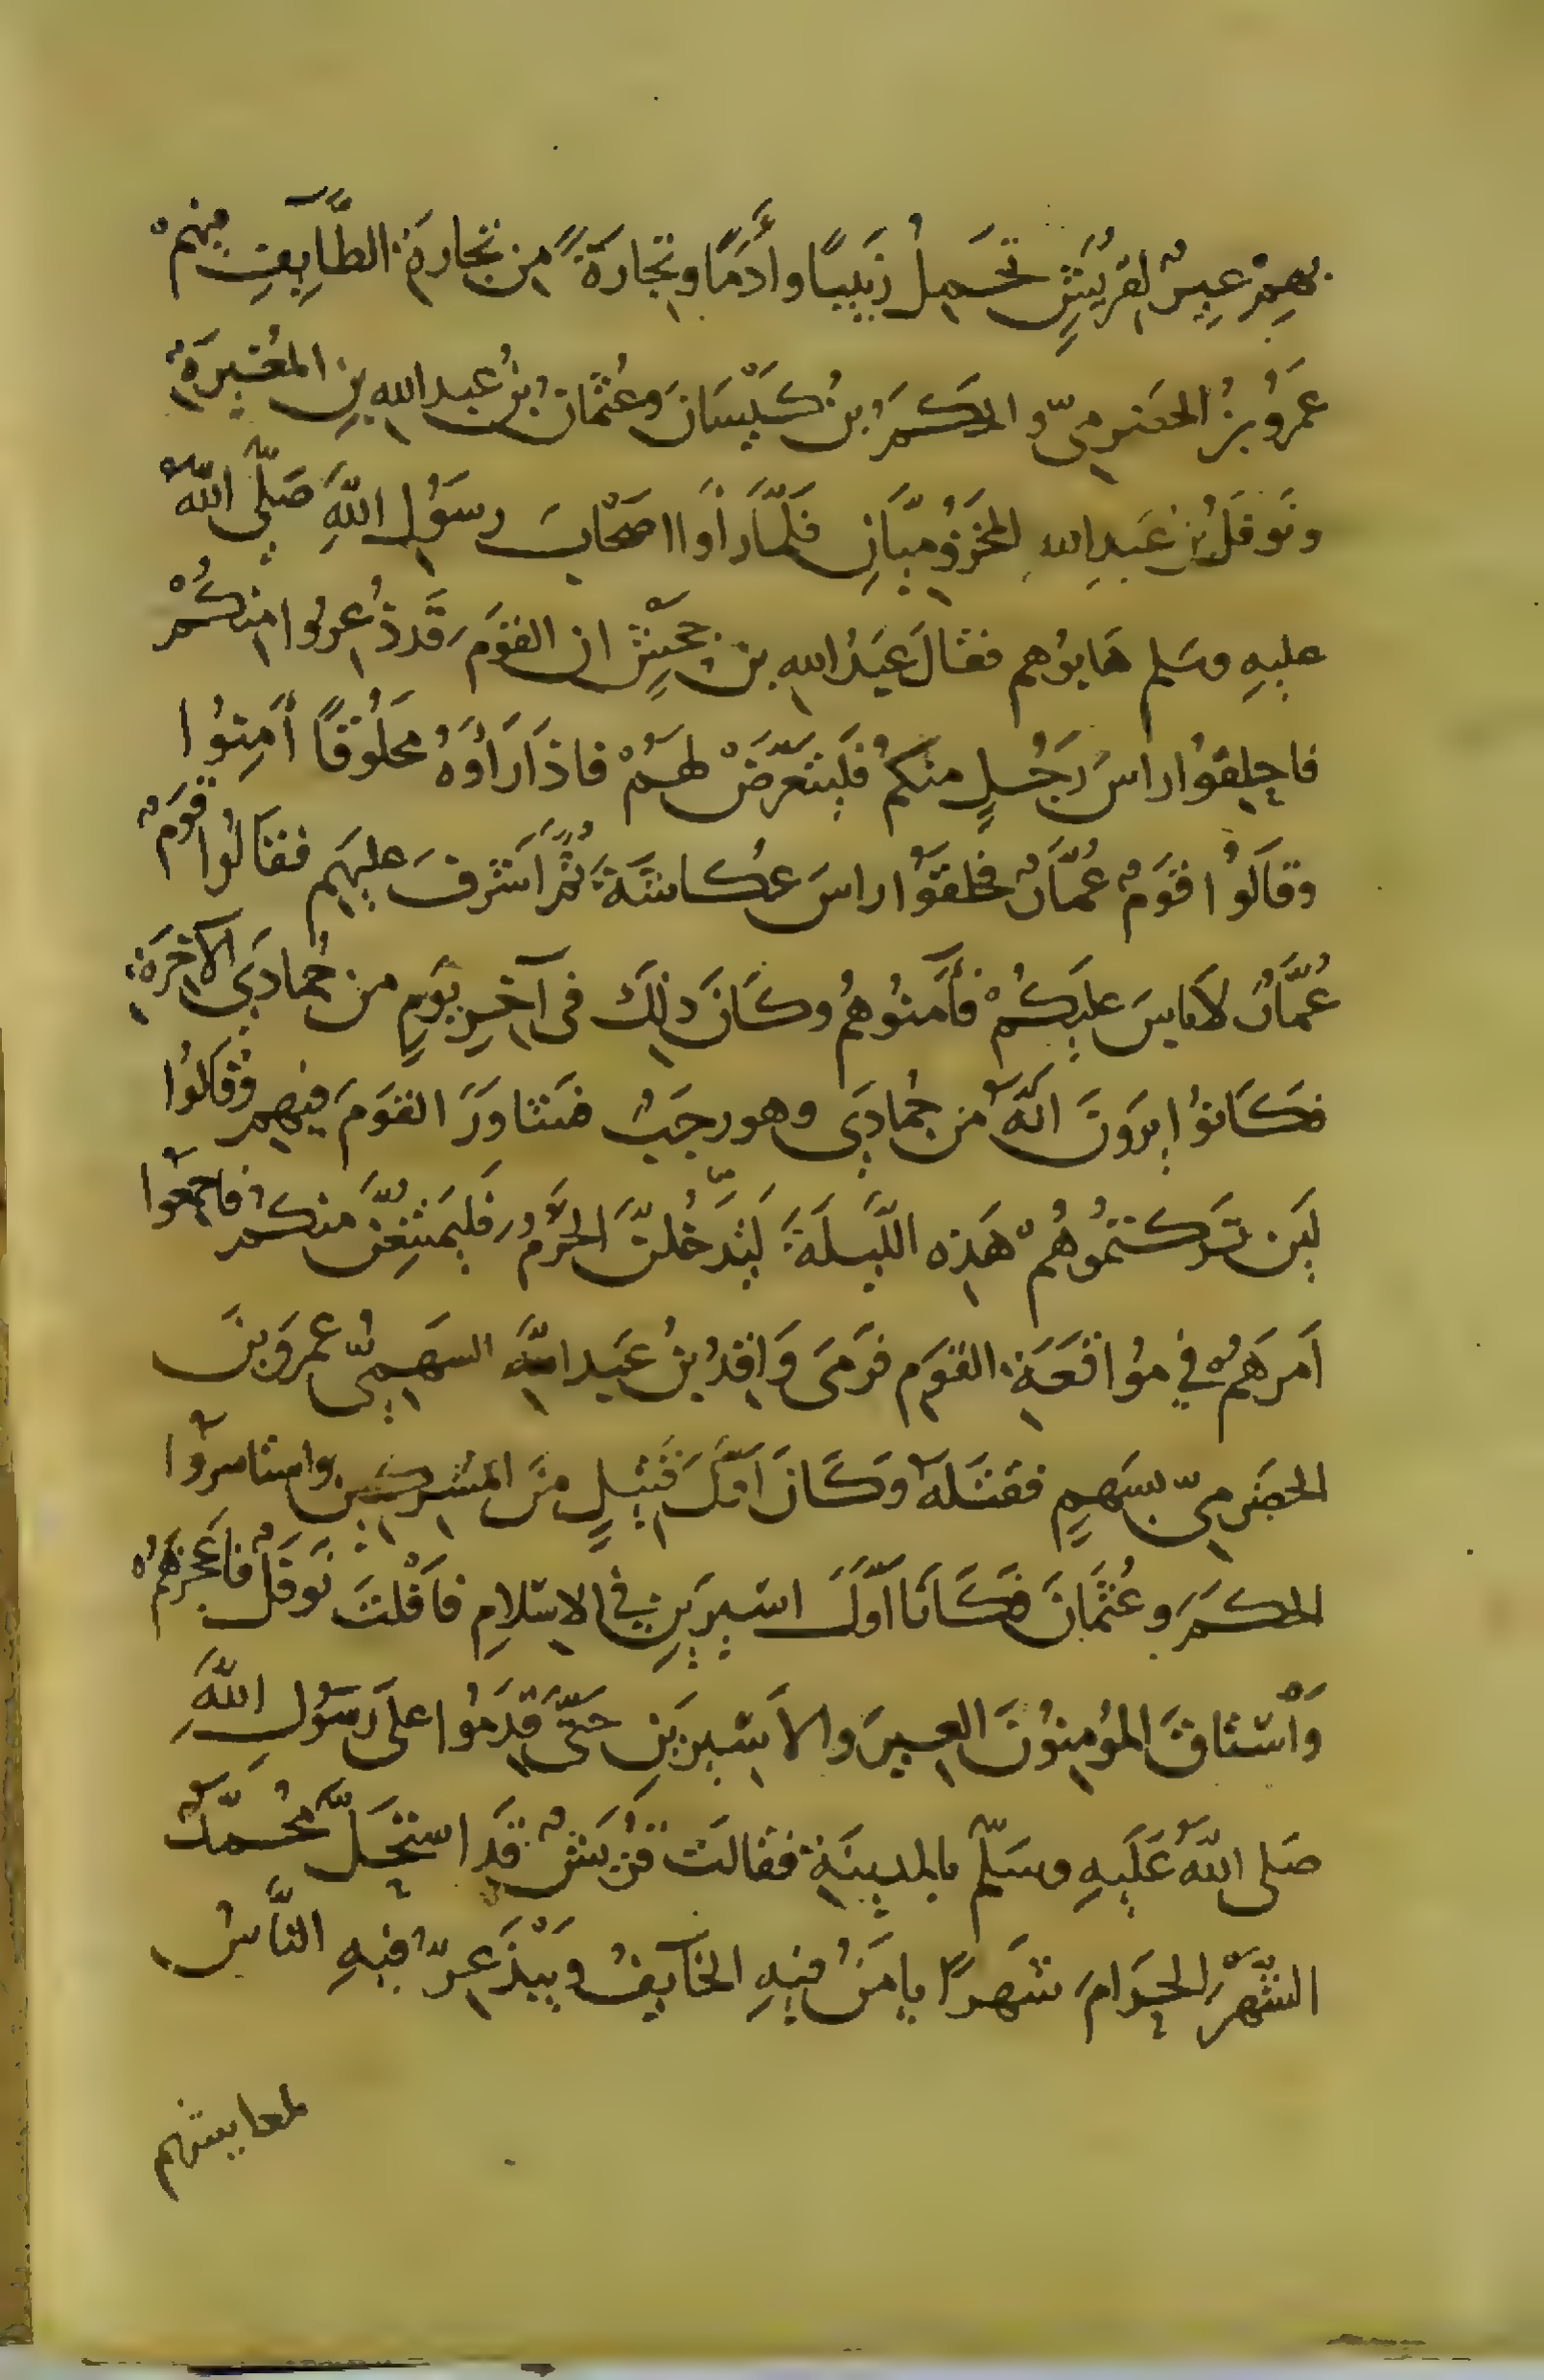 بهم عير لقريش تحمل زبيبًا وأدمًا وتجارةً من تجارة الطّآيف منهم
عمرو بن الحضرميّ والحكم بن كيسان وعثمان بن عبد الله بن المغيرة
ونوفل بن عبد الله المخزوميّان فلمّا رأوا اصحاب رسول الله صلّى الله
عليه وسلم هابوهم فقال عبد الله بن جحش ان القوم قد ذعروا منكم
فاحلقوا راس رجل منكم فليتعرّض لهم فاذا رأوه محلوقًا أمنوا
وقالوا قوم عمّار فحلقوا راس عكاشة ثم اشرف عليهم فقالوا قوم
عمّار لا باس عليكم فأمنوهم وكان ذلك فى آخر يوم من جمادى الاخرة
فكانوا يرون انّه من جمادى وهو رجب فتشاور القوم فيهم وقالوا
لين تركتموهم هذه اللّيلة ليدخلنّ الحرم فليمتنعنّ منكم فاجمعوا
امرهم في مواقعة القوم فرمى واقد بن عبد الله السهميّ عمرو بن
الحضرميّ بسهم فقتله وكان اوّل قتيل من المشركين واستاسروا
الحكم وعثمان فكانا اوّل اسيرين في الاسلام فافلت نوفل فاعجزهم
واستاق المؤمنون العير والاسيرين حتّى قدموا على رسول الله
صلى الله عليه وسلّم بالمدينة فقالت قريش قد استحلّ محمّد
الشّهر الحرام شهرًا يامن فيه الخآيف ويبذعرّ فيه النّاس
لمعايشهم